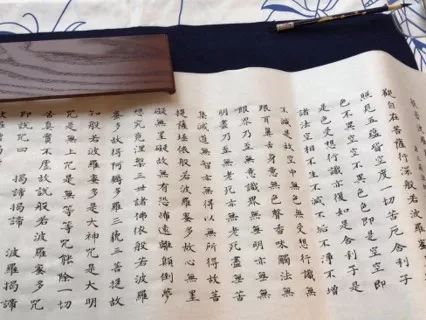 般若波羅蜜
觀自在菩薩行深般若波羅
照見五蘊皆空度一切苦厄舍利子
色不異空空不異色色即是空空即
是色受想行識亦復如是舍利子是
諸法空相不生不滅不垢不淨不增
不減是故空中無色無受想行識無
眼耳鼻舌身意無色聲香味觸法無
眼界乃至無意識界無無明亦無無
明盡乃至無老死亦無老死盡無苦
集滅道無智亦無得以無所得故菩
提薩埵依般若波羅蜜多故心無罣
礙無罣礙故無有恐怖遠離顛倒夢
想究竟涅槃三世諸佛依般若波羅
蜜多故得阿耨多羅三藐三菩提故
知般若波羅蜜多是大神咒是大明
咒是無上咒是無等等咒能除一切
苦真實不虛故說般若波羅蜜多咒
即說咒曰 揭諦揭諦 波羅揭諦